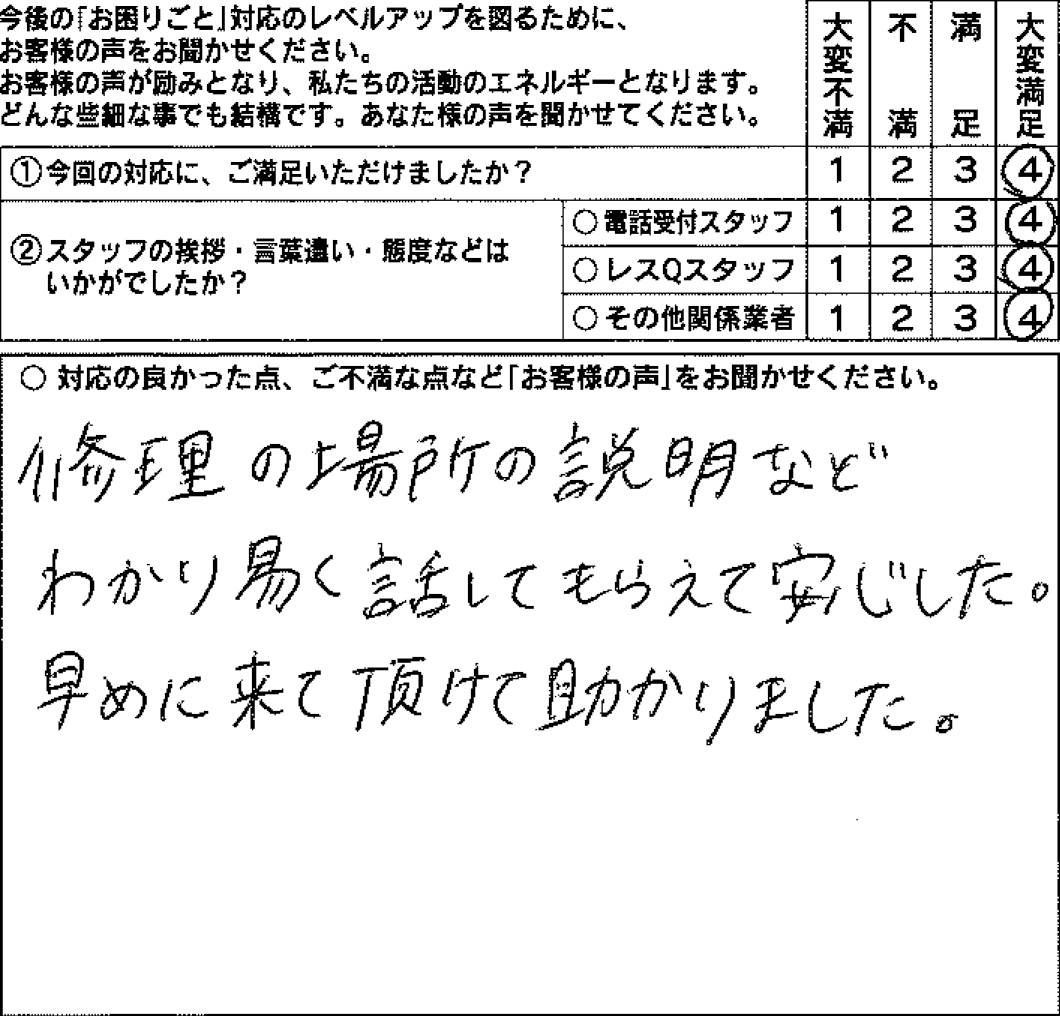 今後の「お困りごと」対応のレベルアップを図るために、
お客様の声をお聞かせください。
お客様の声が励みとなり、私たちの活動のエネルギーとなります。
どんな些細な事でも結構です。あなた様の声を聞かせてください。
大変不満 不満 満足 大変満足
①今回の対応に、ご満足いただけましたか? 1 2 3 4
②スタッフの挨拶・言葉遣い・態度などは
いかがでしたか?
○電話受付スタッフ 1 2 3 4
○レスQスタッフ 1 2 3 4
○その他関係業者 1 2 3 4
○ 対応の良かった点、ご不満な点など「お客様の声」をお聞かせください。
修理の場所の説明など
わかり易く話してもらえて安じした。
早めに来て頂けて助かりました。